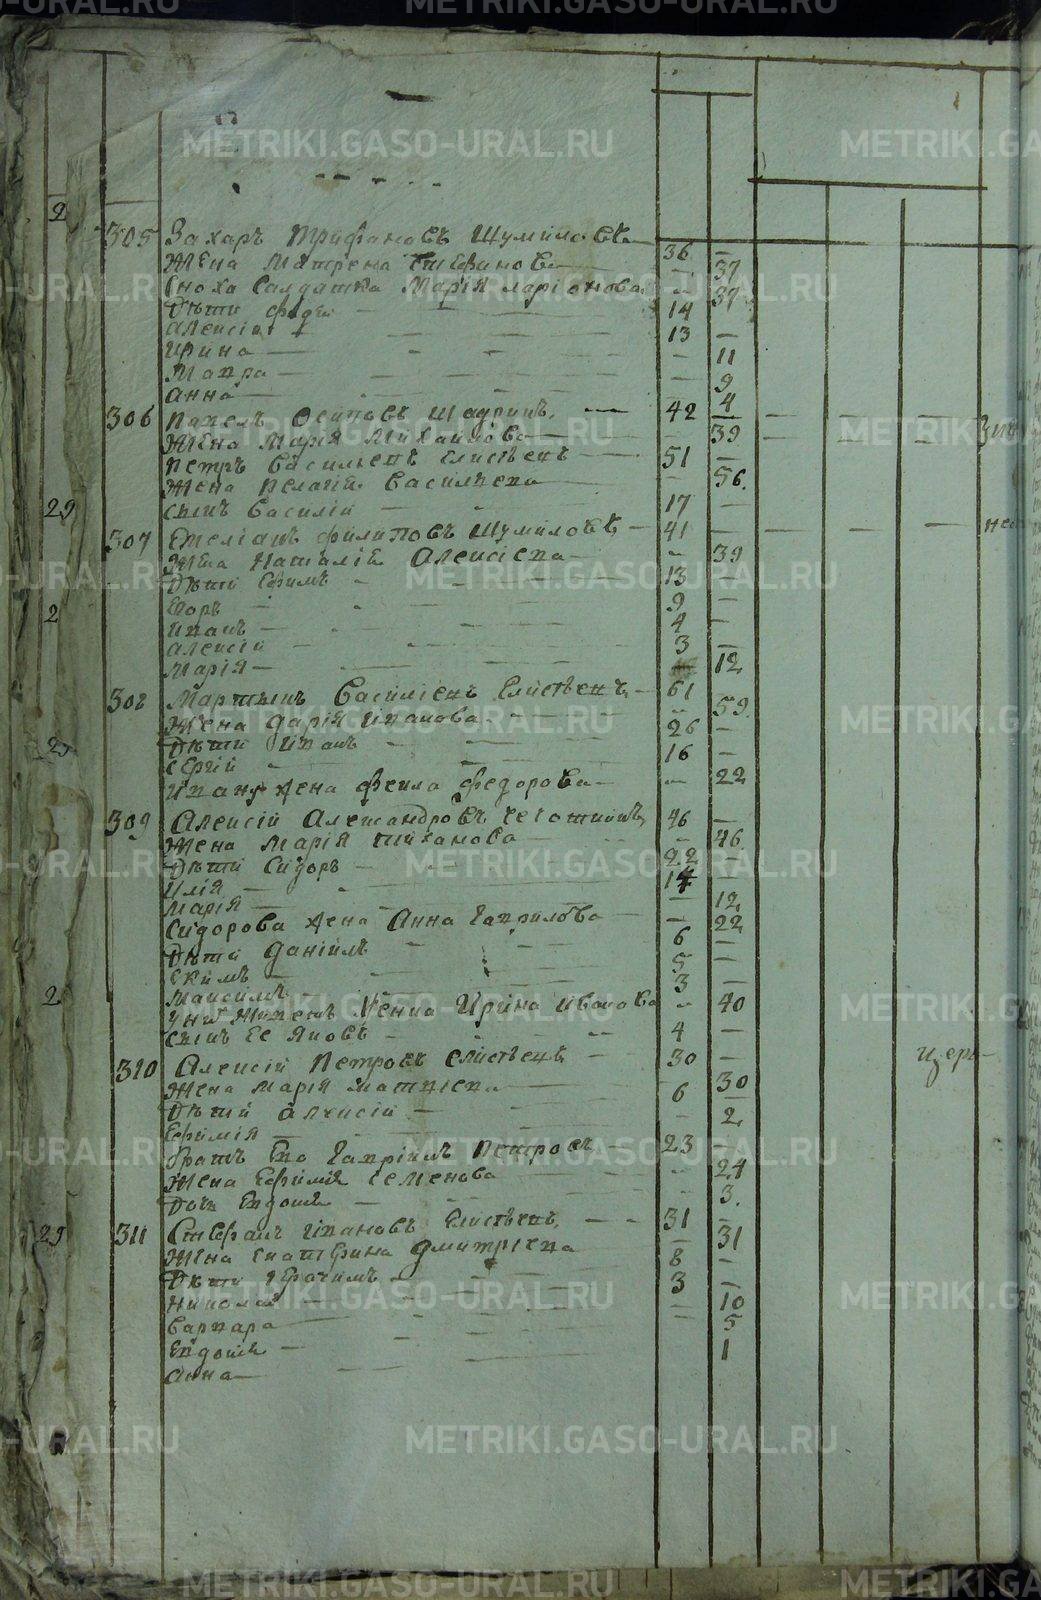 305 Захаръ Трифановъ Шумиловъ 36 —
Жена Матрена Стефанова — 37
Сноха Салдатка Марія Ларіонова — 37
Дѣти Фадеи 14
Алексіи 13 —
Ирина — 11
Мавра — 9
Анна — 4
306 Павелъ Осиповъ Шадринъ 42 —
Жена Марія Михаилова — 39
Петръ Васильевъ Елистевъ 51 —
Жена Пелагія Васильева — 56
сынъ Василіи 17 —
307 Емеліанъ Филиповъ Шумиловъ 41 —
Жена Наталія Алексіева — 39
Дѣти Ефимъ 13 —
Егоръ 9 —
Иванъ 4 —
Алексіи 3 —
Марія — 12
308 Мартынъ Василіевъ Елистевъ 61
Жена Дарія Иванова — 59
Дѣти Иванъ 26 —
Сергіи 16 —
Ивану жена Фекла Федорова — 22
309 Алексіи Александровъ 46 —
Жена Марія Тиханова — 46
Дѣти Сидоръ 22 —
Илія 14
Марія — 12
Сидорова жена Анна Гаврилова — 22
Дѣти Даніилъ 6 —
Екимъ 5 —
Максимъ 3 —
Ирина Иванова — 40
сынъ Ее Яковъ 4 —
310 Алексіи Петровъ Елистевъ 30 —
Жена Марія Матвіева 30
Дѣти Алексіи 6 —
Ефимія — 2
братъ Его Гавріилъ Петровъ 23 —
Жена Ефимія Семенова — 24
Дочь Евдокія — 3
311 Стефанъ Ивановъ Елистевъ 31 —
Жена Екатерина Дмитріева — 31
Дѣти 8 —
Николаи 3 —
Варвара — 10
Евдокія — 5
Анна 1
METRIKI.GASO-URAL.RU